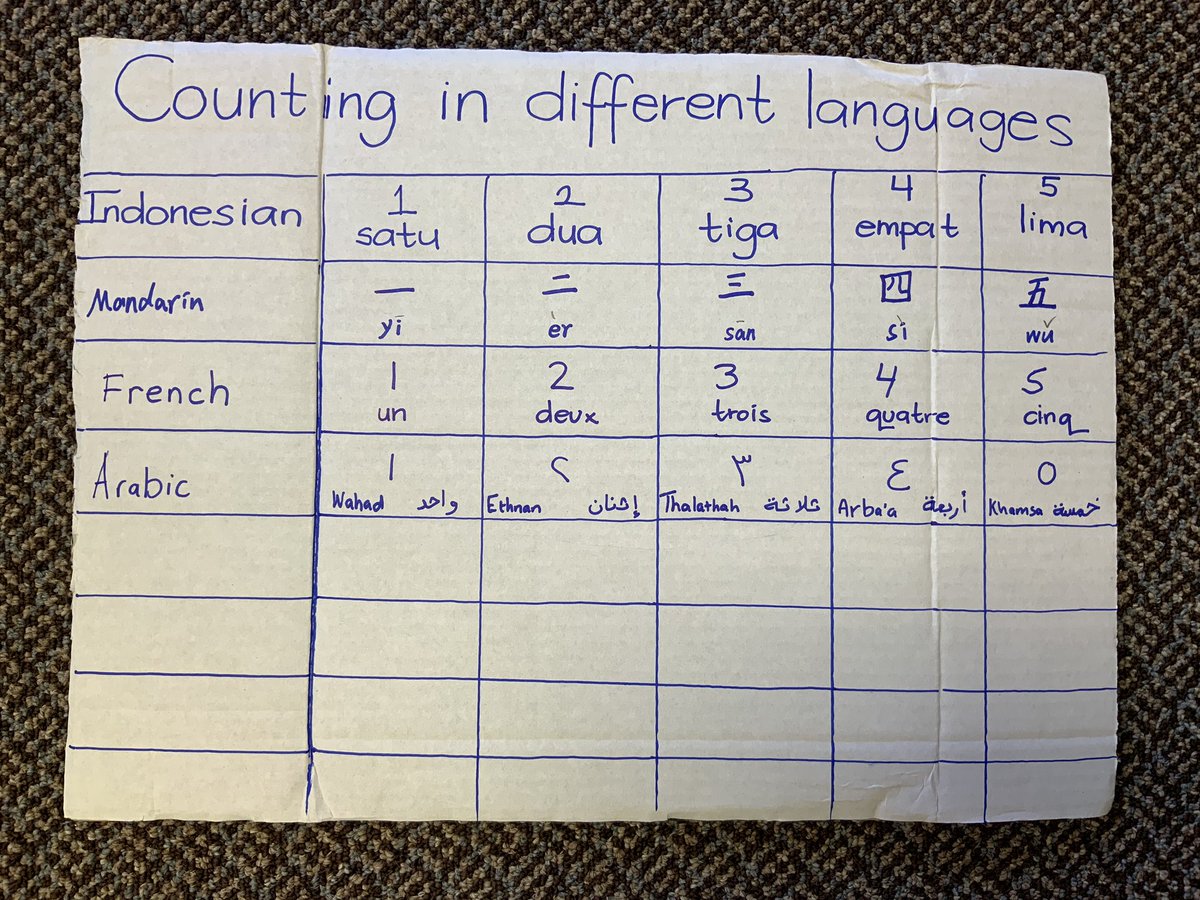 Counting in different languages
Indonesian 1 2 3 4 5
satu dua tiga empat lima
Mandarin 一 二 三 四 五
yī èr sān sì wǔ
French 1 2 3 4 5
un deux trois quatre cinq
Arabic ١ ٢ ٣ ٤ ٥
Wahad واحد Ethnan إثنان Thalathah ثلاثة Arba'a أربعة Khamsa خمسة